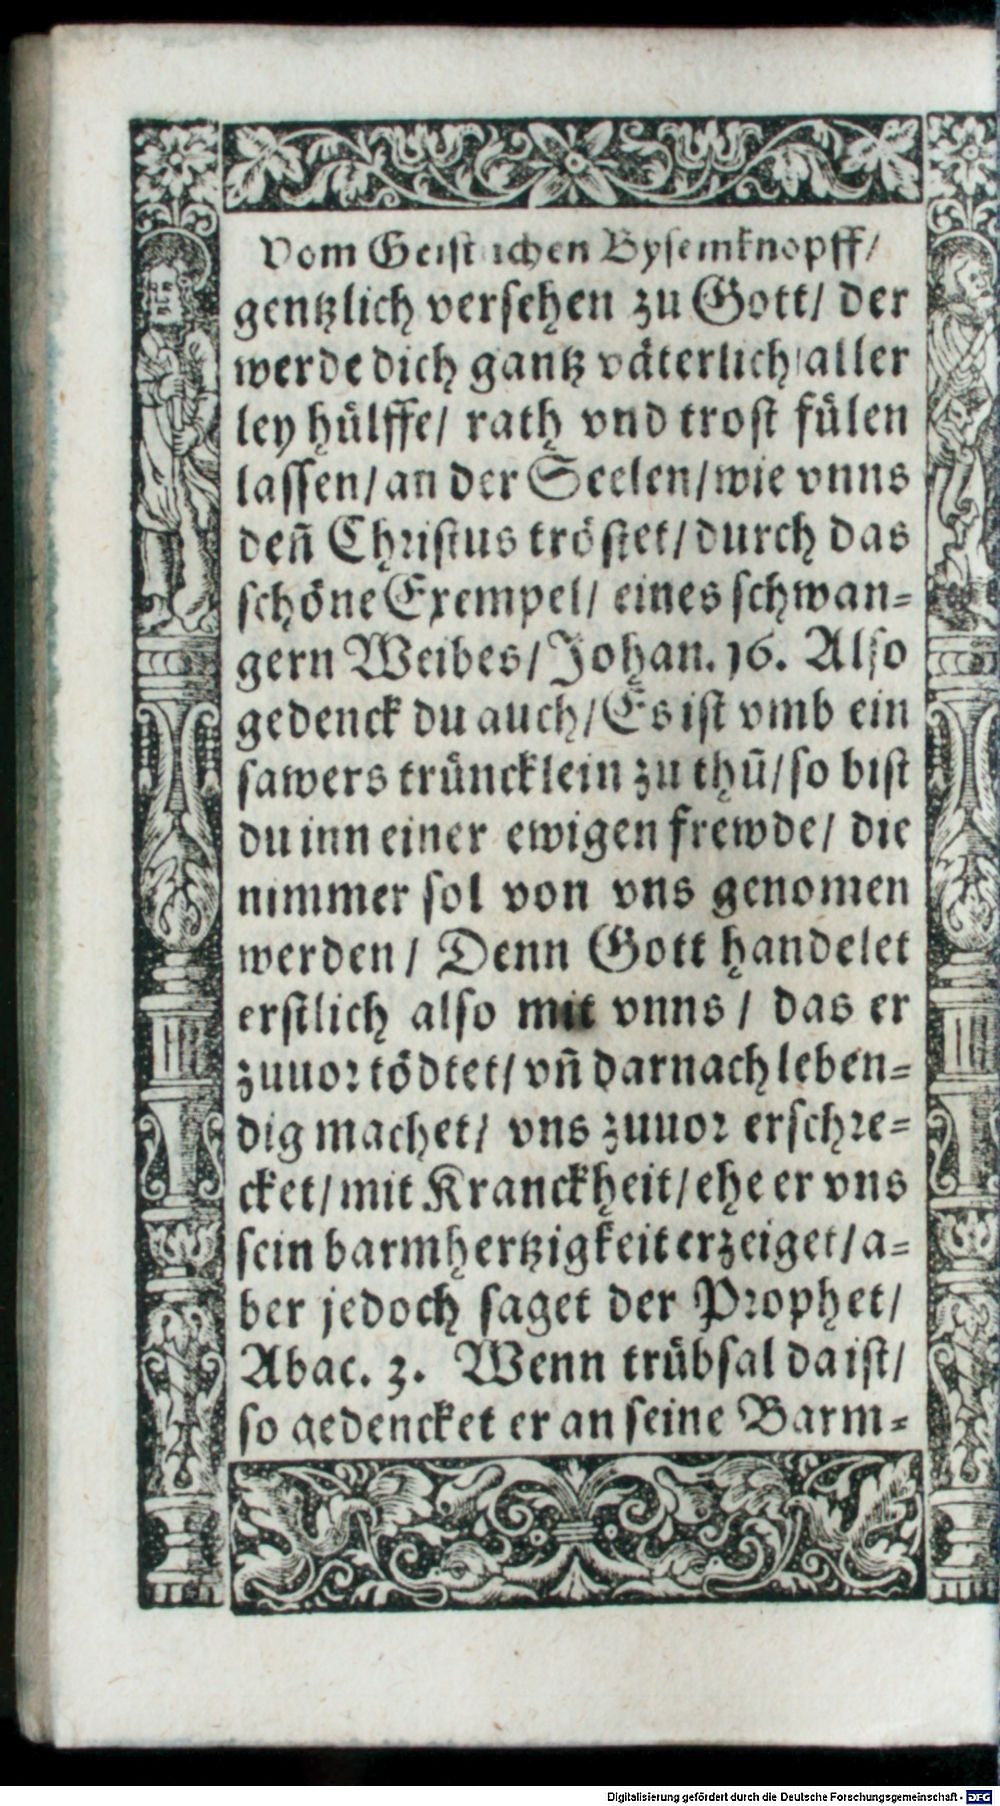 Vom Geistlichen Bysemknopff/
gentzlich versehen zu Gott/ der
werde dich gantz väterlich/aller
ley hülffe/ rath vnd trost fülen
lassen/an der Seelen/wie vnns
deñ Christus tröstet/durch das
schöne Exempel/ eines schwan=
gern Weibes/Johan. 16. Also
gedenck du auch/Es ist vmb ein
sawers trüncklein zu thũ/so bist
du inn einer ewigen frewde/ die
nimmer sol von vns genomen
werden/ Denn Gott handelet
erstlich also mit vnns/ das er
zuuor tödtet/vñ darnach leben=
dig machet/ vns zuuor erschre=
cket/mit Kranckheit/ehe er vns
sein barmhertzigkeit erzeiget/a=
ber jedoch saget der Prophet/
Abac. 3. Wenn trübsal da ist/
so gedencket er an seine Barm=
Digitalisierung gefördert durch die Deutsche Forschungsgemeinschaft - DFG